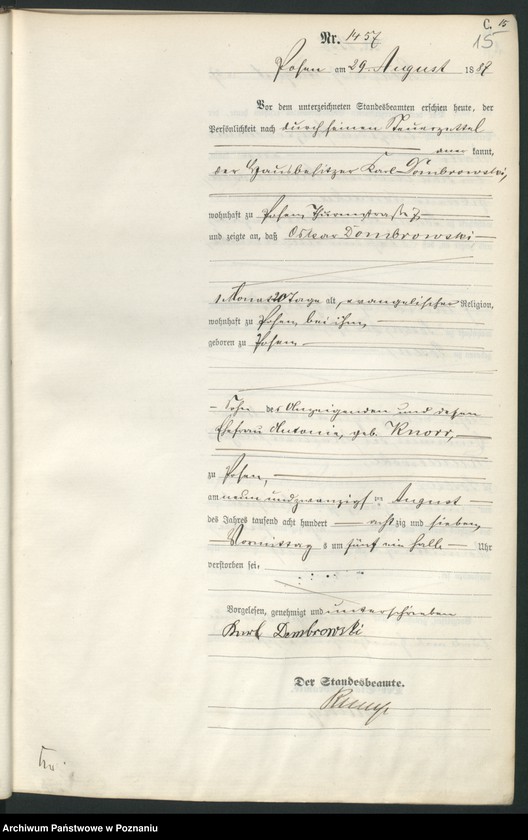 C. 15
15
Nr. 1457
Posen am 29. August 1887
Vor dem unterzeichneten Standesbeamten erschien heute, der
Persönlichkeit nach durch seinen Steuerzettel
aner kannt,
der Hausbesitzer Karl Dombrowski,
wohnhaft zu Posen, Thurmstraße 7,
und zeigte an, daß Oskar Dombrowski
1 Monat 20 Tage alt, evangelischer Religion,
wohnhaft zu Posen, bei ihm,
geboren zu Posen
Sohn des Anzeigenden und dessen
Ehefrau Antonie, geb. Knorr,
zu Posen,
am neun und zwanzigsten August
des Jahres tausend acht hundert achtzig und sieben,
Vormittags um fünf ein halb Uhr
verstorben sei.
Vorgelesen, genehmigt und unterschrieben
Karl Dombrowski
Der Standesbeamte.
Archiwum Państwowe w Poznaniu